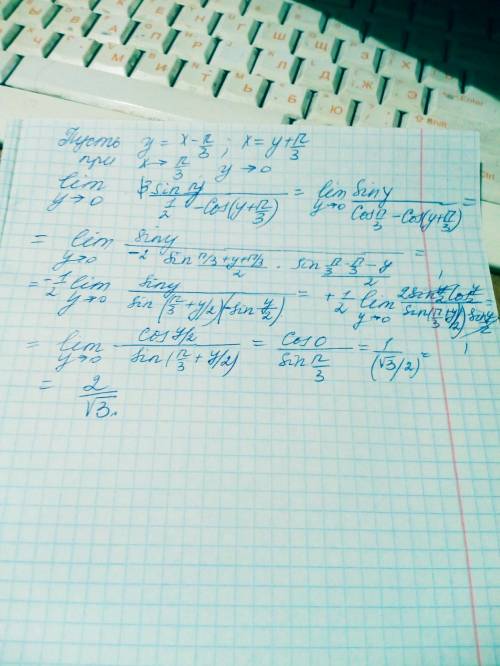 Пусть y = x - π/3 ; x = y + π/3
при x → π/3 y → 0
lim y→0 sin y / (1/2 - cos(y + π/3)) = lim y→0 sin y / (cos π/3 - cos(y + π/3)) =
= lim y→0 sin y / (-2 sin (π/3 + y + π/3)/2 · sin (π/3 - π/3 - y)/2) =
= -1/2 lim y→0 sin y / (sin(π/3 + y/2)(-sin y/2)) = + 1/2 lim y→0 2 sin y/2 cos y/2 / (sin(π/3 + y/2) sin y/2) =
= lim y→0 cos y/2 / sin(π/3 + y/2) = cos 0 / sin π/3 = 1/(√3/2) =
= 2/√3.